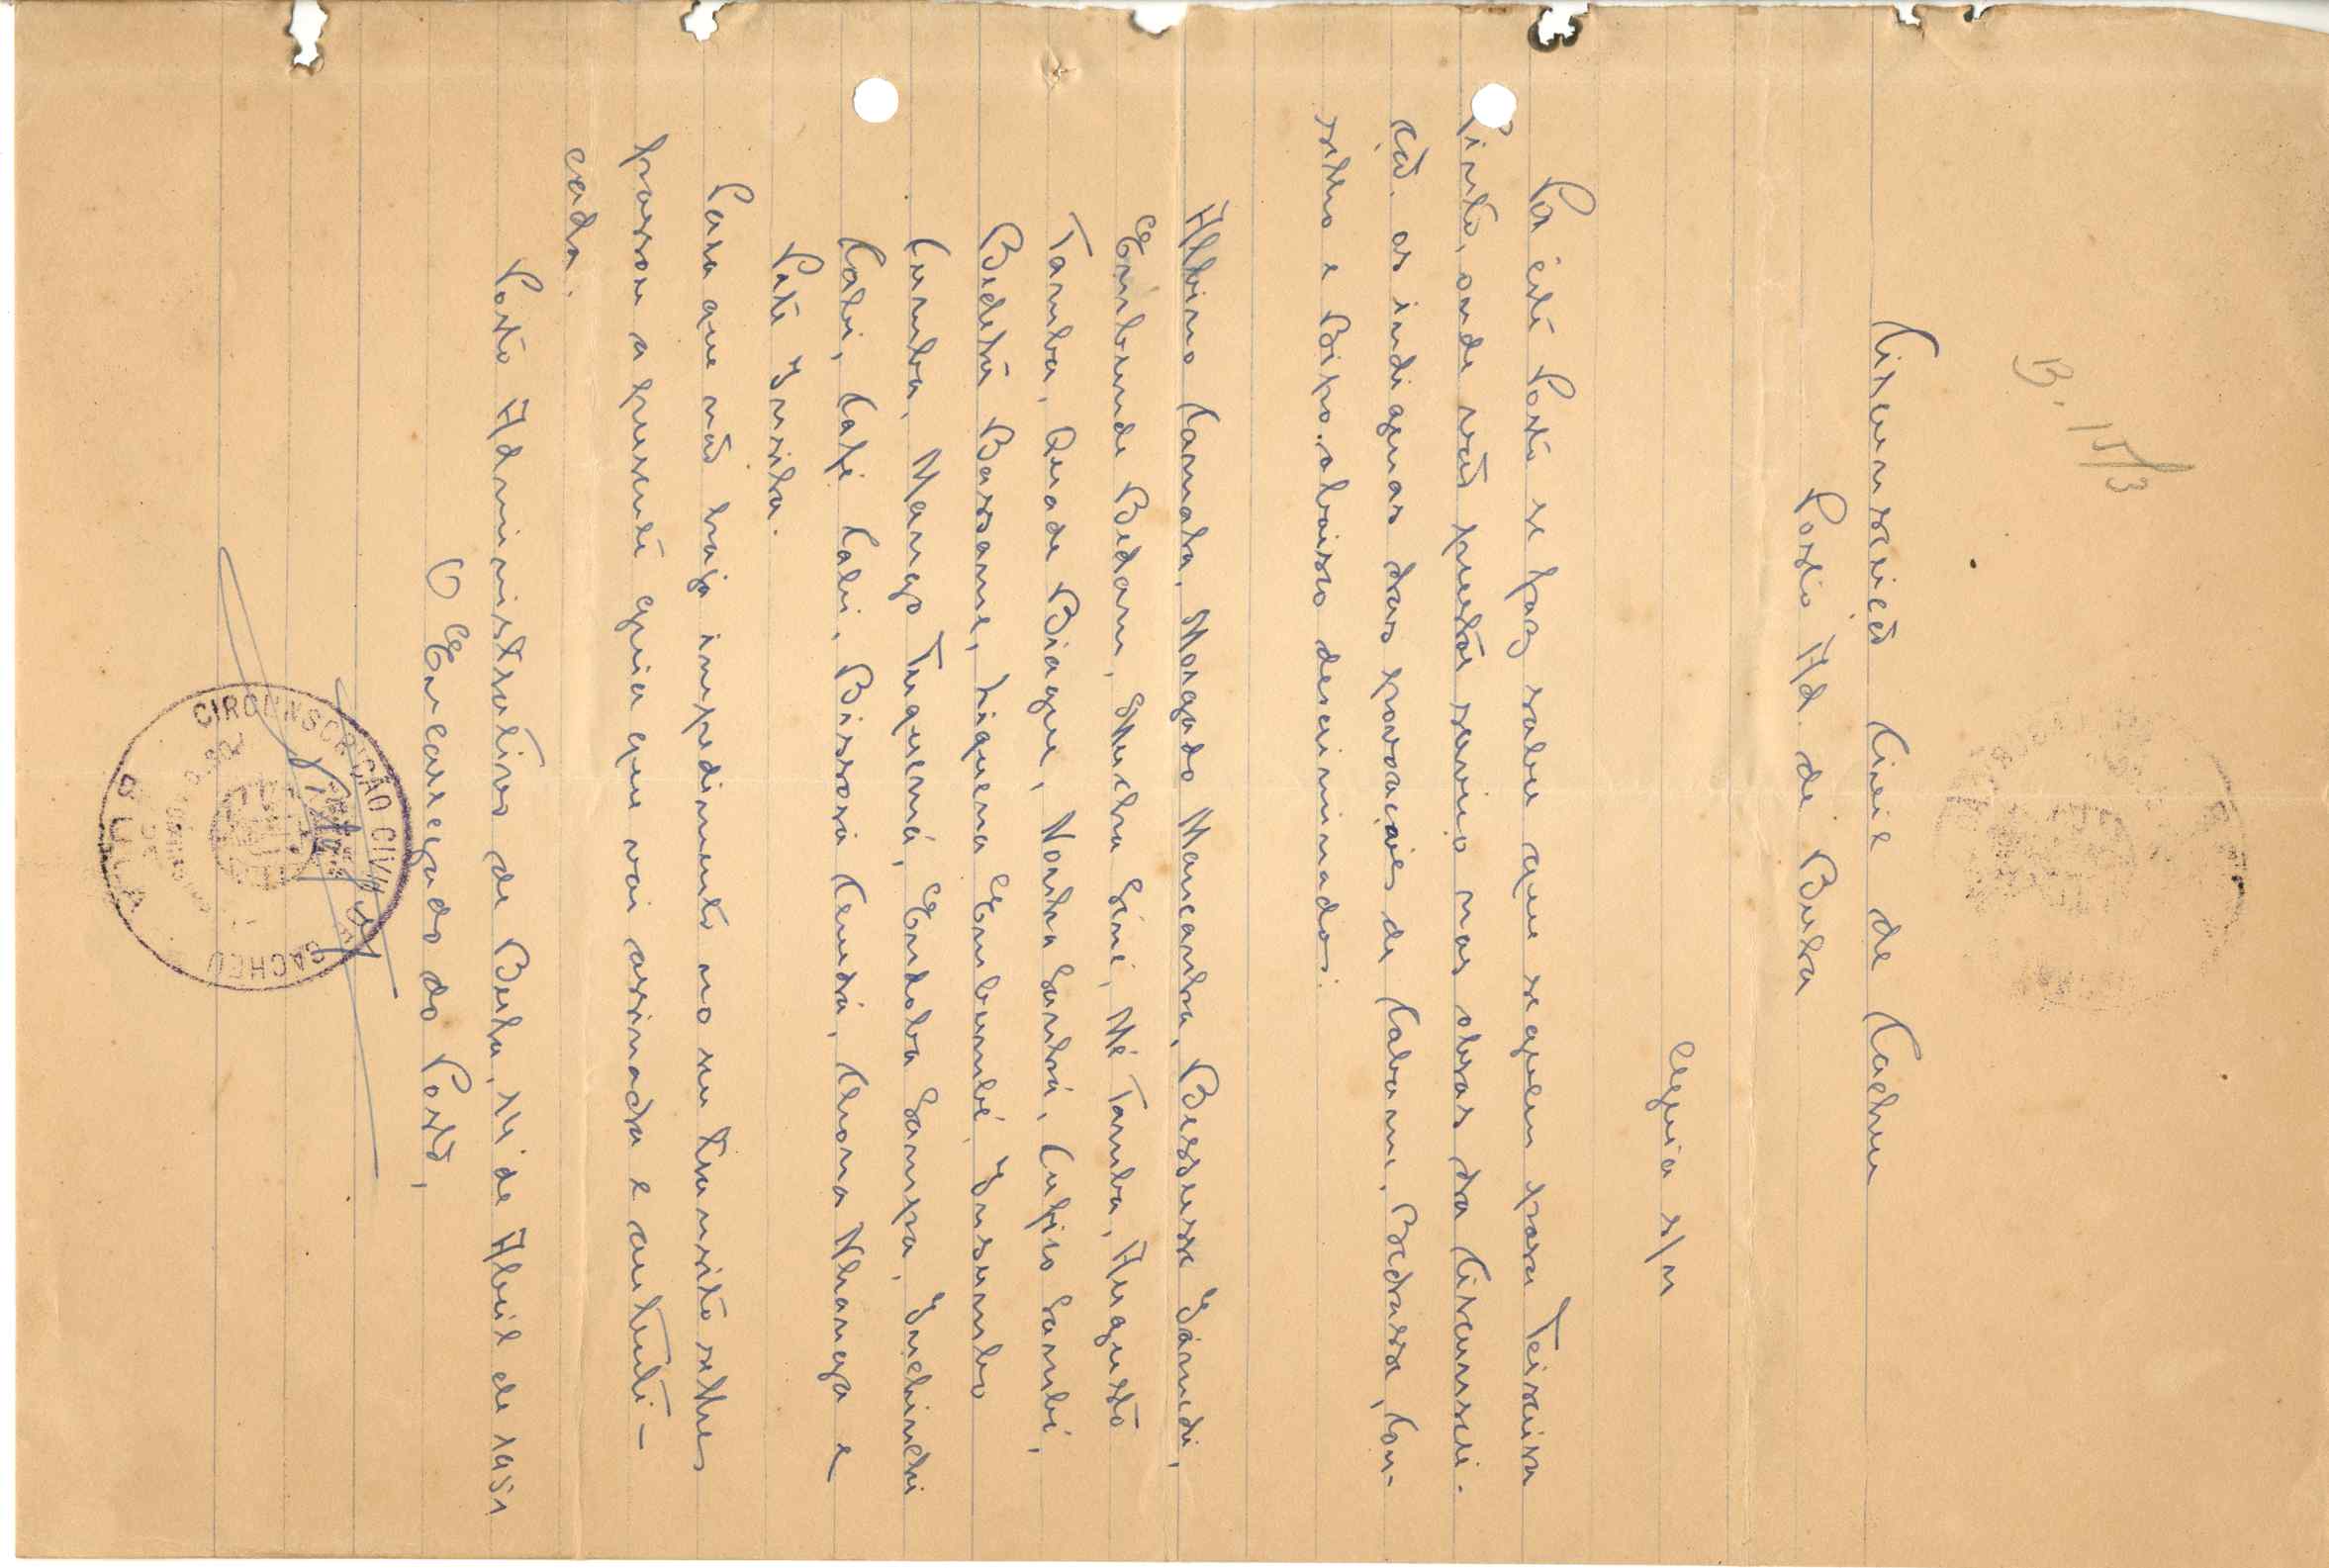 B. 15/3
Circunscrição Civil de Cacheu
Posto Ad. de Bula
Guia s/n
Por êste Posto se faz saber que seguem para Teixeira
Pinto, onde vão prestar serviço nas obras da Circunscri-
ção. os indigenas das povoações de Cabomi, Bedassa, Con-
selho e Bipo. abaixo descriminados:
Albino Camata, Morgado Mancanha, Bessusse Iamedi,
Embunde Bidam, Sini, Mé Tamba, Augusto
Tamba, Quade Biague, Nonha Santá, Cufico Sambi,
Bidetá Bassame, Liquena Embumbé, Insumbo
Cumba, Mango Tuquemá, Endoba Sampa, Inchinchi
Cabi, Cafi Cabi, Bissorá Cludá, Nhanga e
Pate Insita.
Para que não haja impedimento no seu transito selhes
passou a presente guia que vai assinada e autenti-
cada.
Posto Administrativo de Bula, 14 de Abril de 1951
O Encarregado do Posto,
CIRCUNSCRIÇÃO CIVIL DE CACHEU
BULA